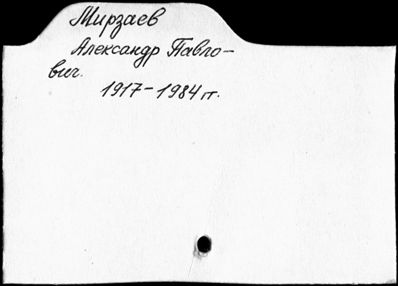 Мирзаев
Александр Павло-
вич.
1917-1984 гг.